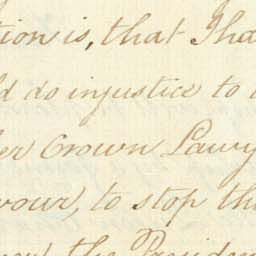 tion is, that I ha
d do injustice to
er Crown Lawy
vour, to stop th
the Presiden